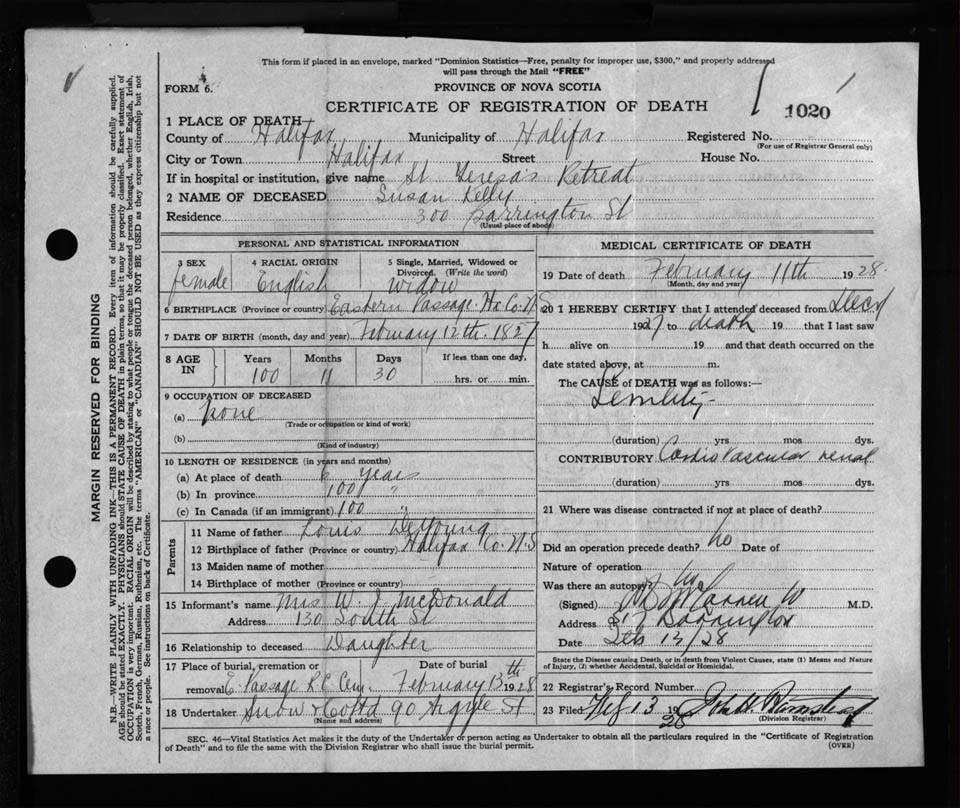 This form if placed in an envelope, marked "Dominion Statistics—Free, penalty for improper use, $300," and properly addressed
will pass through the Mail "FREE"
FORM 6.
PROVINCE OF NOVA SCOTIA
CERTIFICATE OF REGISTRATION OF DEATH
1020
1 PLACE OF DEATH
County of Halifax Municipality of Halifax Registered No.
(For use of Registrar General only)
City or Town Halifax Street House No.
If in hospital or institution, give name St Teresa's Retreat
2 NAME OF DECEASED Susan Kelly
Residence 300 Barrington St
(Usual place of abode)
PERSONAL AND STATISTICAL INFORMATION
3 SEX 4 RACIAL ORIGIN 5 Single, Married, Widowed or
Divorced. (Write the word)
female English widow
6 BIRTHPLACE (Province or country) Eastern Passage Hx Co. N S
7 DATE OF BIRTH (month, day and year) February 12th. 1827
8 AGE IN Years Months Days If less than one day,
100 11 30 hrs. or min.
9 OCCUPATION OF DECEASED
(a) none
(Trade or occupation or kind of work)
(b)
(Kind of industry)
10 LENGTH OF RESIDENCE (in years and months)
(a) At place of death 6 years
(b) In province 100 "
(c) In Canada (if an immigrant) 100 "
Parents
11 Name of father Louis DeYoung
12 Birthplace of father (Province or country) Halifax Co. N S
13 Maiden name of mother
14 Birthplace of mother (Province or country)
15 Informant's name Mrs W. J. McDonald
Address 130 South St
16 Relationship to deceased Daughter
17 Place of burial, cremation or Date of burial
removal E. Passage R.C. Cem. February 13th 1928
18 Undertaker Snow & Co Ltd 90 Argyle St
(Name and address)
MEDICAL CERTIFICATE OF DEATH
19 Date of death February 11th 1928.
(Month, day and year)
20 I HEREBY CERTIFY that I attended deceased from Dec
1927 to death 19 that I last saw
h alive on 19 and that death occurred on the
date stated above, at m.
The CAUSE of DEATH was as follows:—
Senility
(duration) yrs mos dys.
CONTRIBUTORY Cardio Vascular renal
(duration) yrs mos dys.
21 Where was disease contracted if not at place of death?
Did an operation precede death? no Date of
Nature of operation
Was there an autopsy? no
(Signed) M.D.
Address Barrington
Date Feb 12/28
State the Disease causing Death, or in death from Violent Causes, state (1) Means and Nature
of Injury, (2) whether Accidental, Suicidal or Homicidal.
22 Registrar's Record Number
23 Filed 13 1928 John
(Division Registrar)
SEC. 46—Vital Statistics Act makes it the duty of the Undertaker or person acting as Undertaker to obtain all the particulars required in the "Certificate of Registration
of Death" and to file the same with the Division Registrar who shall issue the burial permit.
(OVER)
MARGIN RESERVED FOR BINDING
N.B.—WRITE PLAINLY WITH UNFADING INK—THIS IS A PERMANENT RECORD. Every item of information should be carefully supplied.
AGE should be stated EXACTLY. PHYSICIANS should STATE CAUSE OF DEATH in plain terms, so that it may be properly classified. Exact statement of
OCCUPATION is very important. RACIAL ORIGIN will be described by stating to what people or tongue the deceased person belonged, whether English, Irish,
Scotch, French, German, Russian, Ruthenian, etc. The terms "AMERICAN" or "CANADIAN" SHOULD NOT BE USED as they express citizenship but not
a race or people. See instructions on back of Certificate.